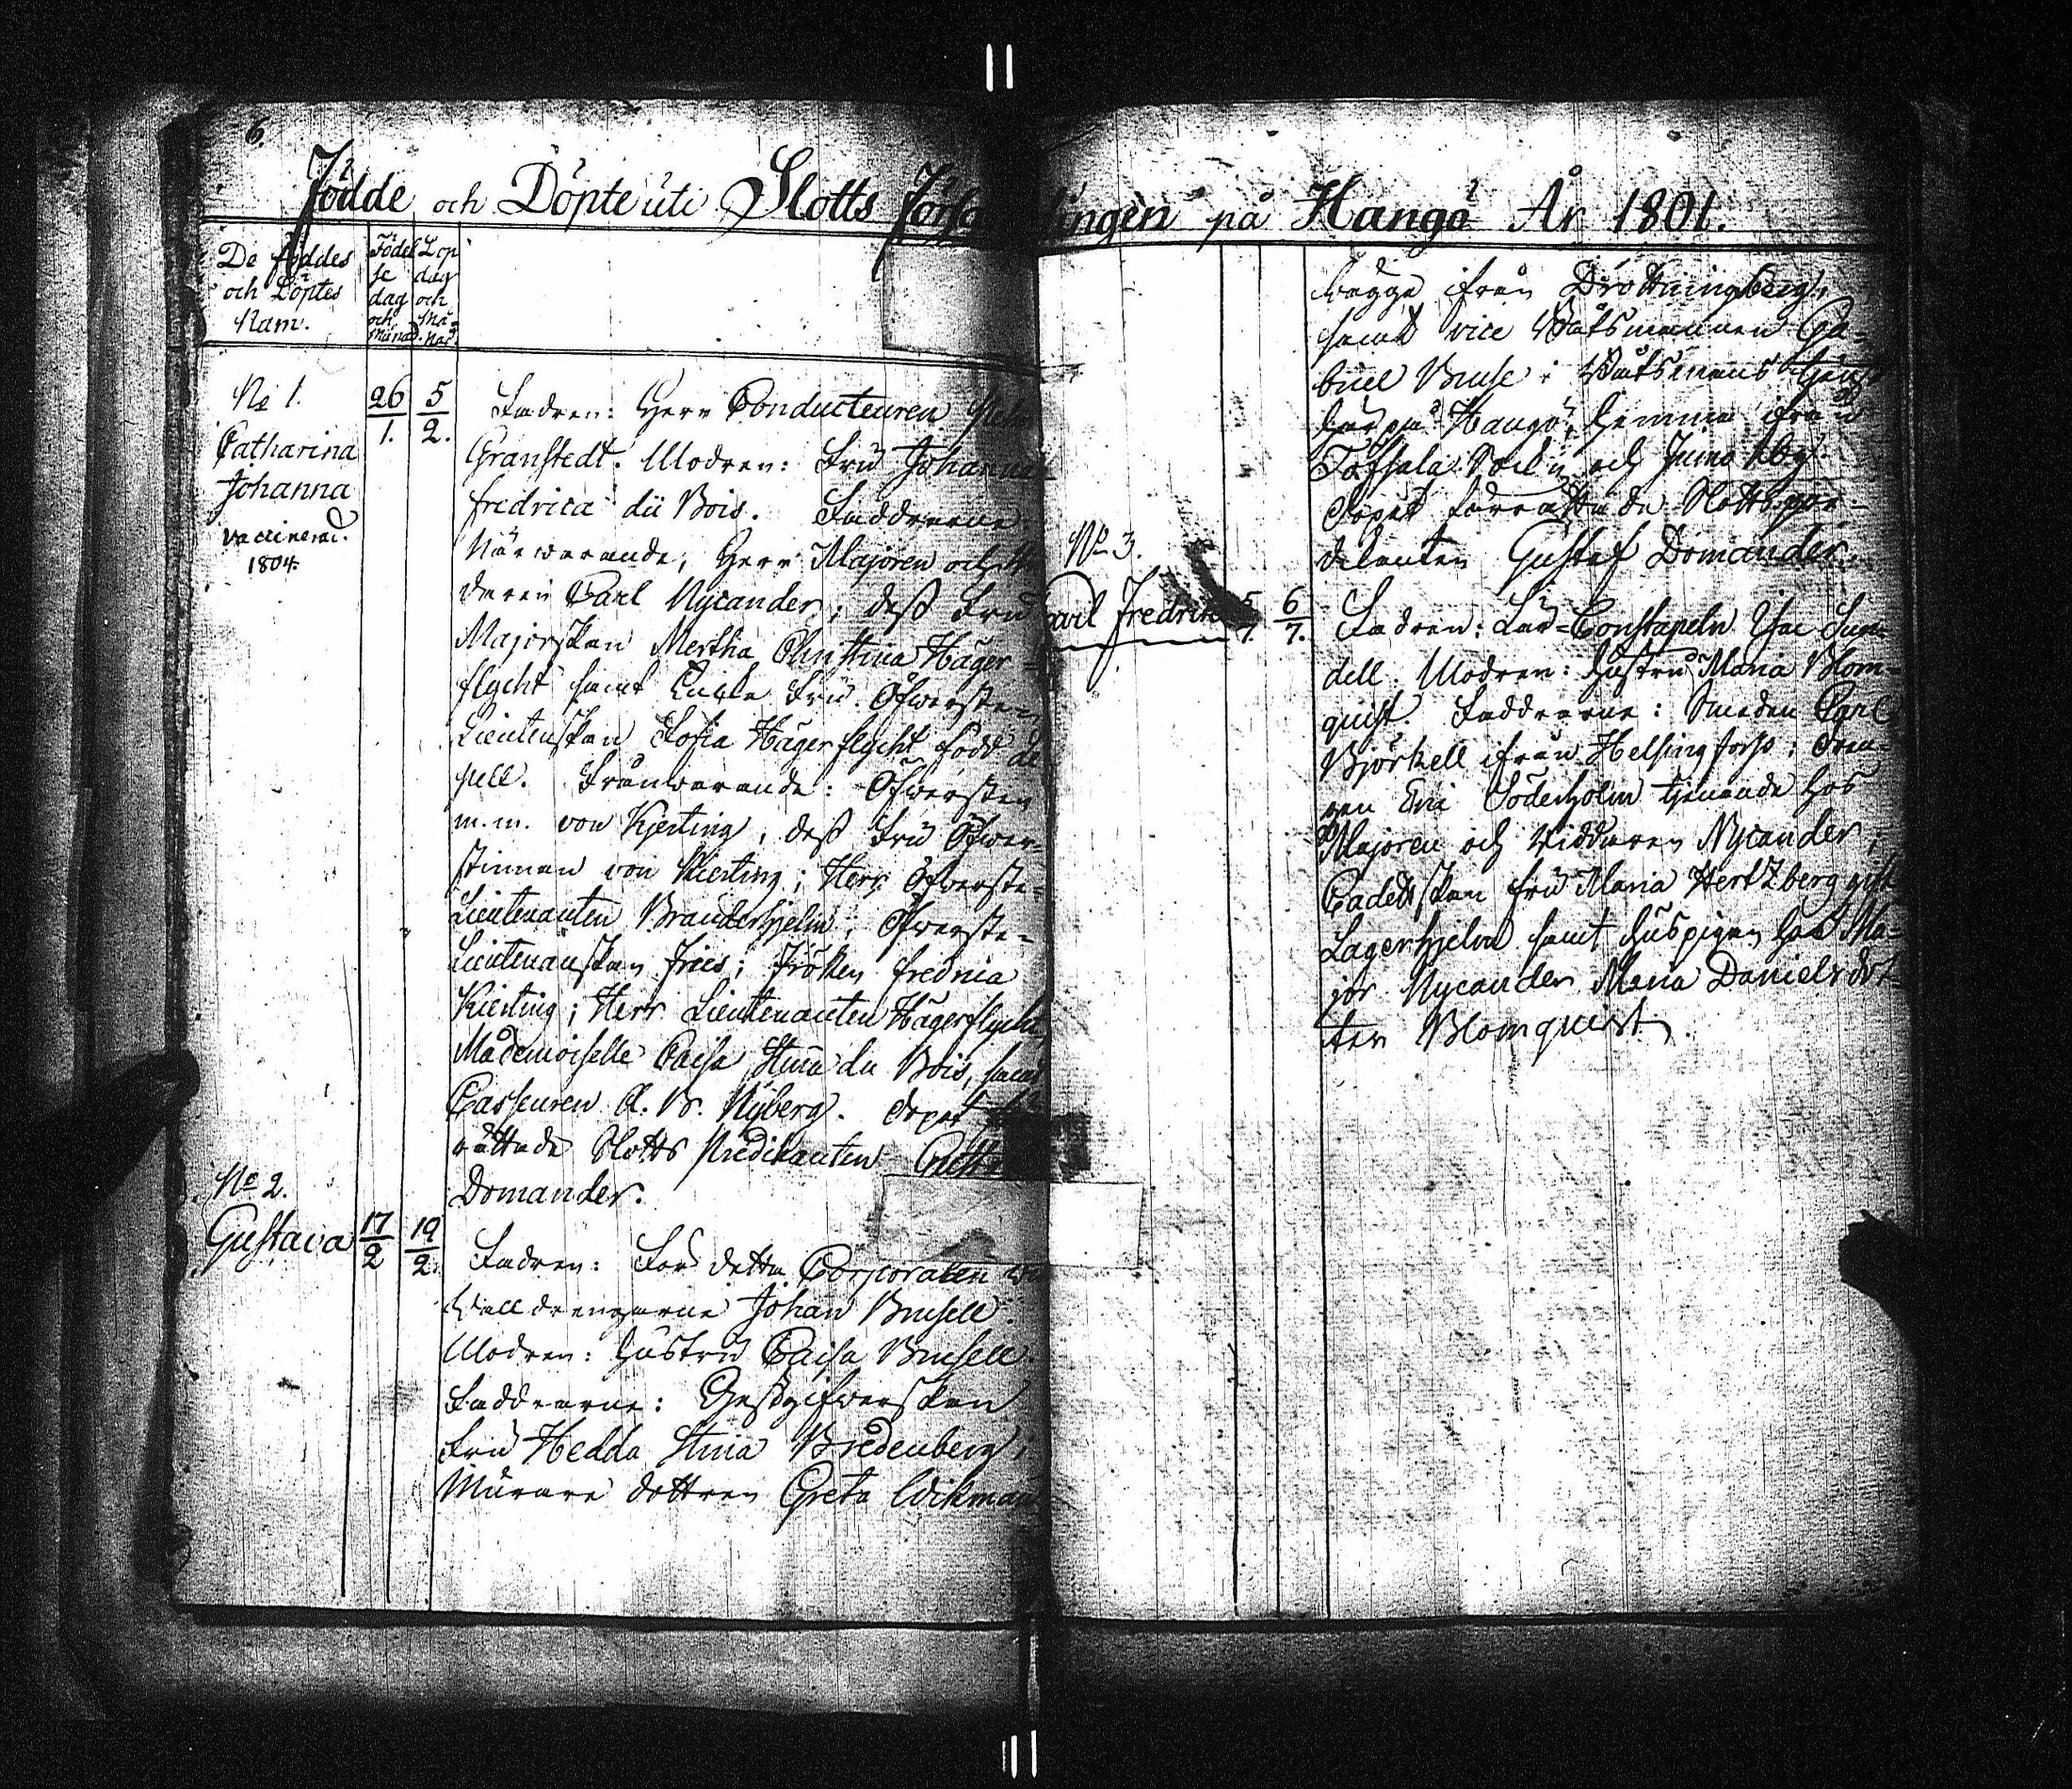 6.
Födde och Döpte uti Slotts Förſa lingen på Hangö År 1801.
De föddes
och Döptes
Namn.
Födel
se
dag
och
Månad.
Döp
dag
och
Må=
nad.
No 1.
Catharina
Johanna
vaccinerad.
1804.
26/1.
5/2.
Fadren: Herr Conducteuren
Granstedt. Modren: Fru Johanna
Fredrica du Bois. Faddrarne
Närwarande; Herr Majoren och
daren Carl Nycander; deß Fru
Majorskan Mertha Christina Häger=
flycht samt Enkle Fru Öfwerste
Lieutenskan Sofia Hägerflycht född de
pell. Frånwarande: Öfwersten
m.m. von Kjerting, deß Fru Öfwer=
stinnan von Kierting; Herr Öfwerste=
Lieutenanten Branderhjelm; Öfwerste=
Lieutenanskan Fries; Fröken Fredrica
Kierting; Herr Lieutenanten Hägerflycht
Mademoiselle Caisa Stina du Bois, samt
Casseuren A. B. Nyberg. Dopet
rättade Slotts Predikanten
Domander.
No 2.
Gustava
17/2
19/2.
Fadren: För detta Corporalen
Walldrengarne Johan Brusell.
Modren: hustru Caisa Brusell.
Faddrarne: Gestgifwerskan
Fru Hedda Stina Bredenberg;
Murare dottren Greta Wikman
bägge ifrån Drottningberg;
samt vice Båtsmannen Ga=
briel Bruse i Båtsmans
på Hangö, hemma ifrån
Töfsala Sockn och Jumo
Dopet förrättade Slottspre=
dikanten Gustaf Domander.
No 3.
Carl Fredrik
5/7.
6/7.
Fadren: Lär=Constapeln Isac Sun=
dell. Modren: hustru Maria Blom=
quist. Faddrarne: Smeden Carl
Björkell ifrån Helsingfors; Dren=
gen Eric Söderholm tjenande hos
Majoren och Riddaren Nycander;
Cadettskan Fru Maria Hertzberg gift
Lagerhjelm samt huspigan hos Ma=
jor Nycander Maria Danielsdot=
ter Blomquist.